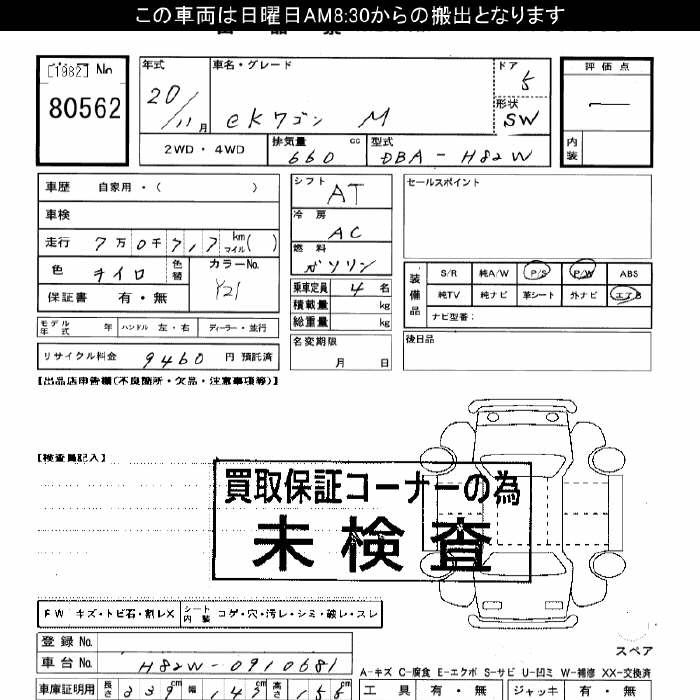 この車両は日曜日AM8:30からの搬出となります
[1982] No
80562
年式 20/11月
車名・グレード
eKワゴン M
ドア 5
形状 SW
評価点
内装
2WD・4WD
排気量 660 cc
型式 DBA-H82W
車歴 自家用・( )
車検
走行 7万0千717 km マイル( )
色 キイロ 色替 カラーNo. Y21
保証書 有・無
モデル年式 年 ハンドル 左・右 ディーラー・並行
リサイクル料金 9460 円 預託済
シフト AT
冷房 AC
燃料 ガソリン
乗車定員 4 名
積載量 kg
総重量 kg
名変期限
月 日
セールスポイント
装備品
S/R 純A/W P/S P/W ABS
純TV 純ナビ 革シート 外ナビ エアB
ナビ型番:
後日品
【出品店申告欄(不良箇所・欠品・注意事項等)】
【検査員記入】
買取保証コーナーの為
未検査
FW キズ・トビ石・割レX シート内装 コゲ・穴・汚レ・シミ・破レ・スレ
登録No.
車台No. H82W-0910681
スペア
A-キズ C-腐食 E-エクボ S-サビ U-凹ミ W-補修 XX-交換済
車庫証明用 長さ 339cm 幅 147cm 高さ 155
工具 有・無 ジャッキ 有・無